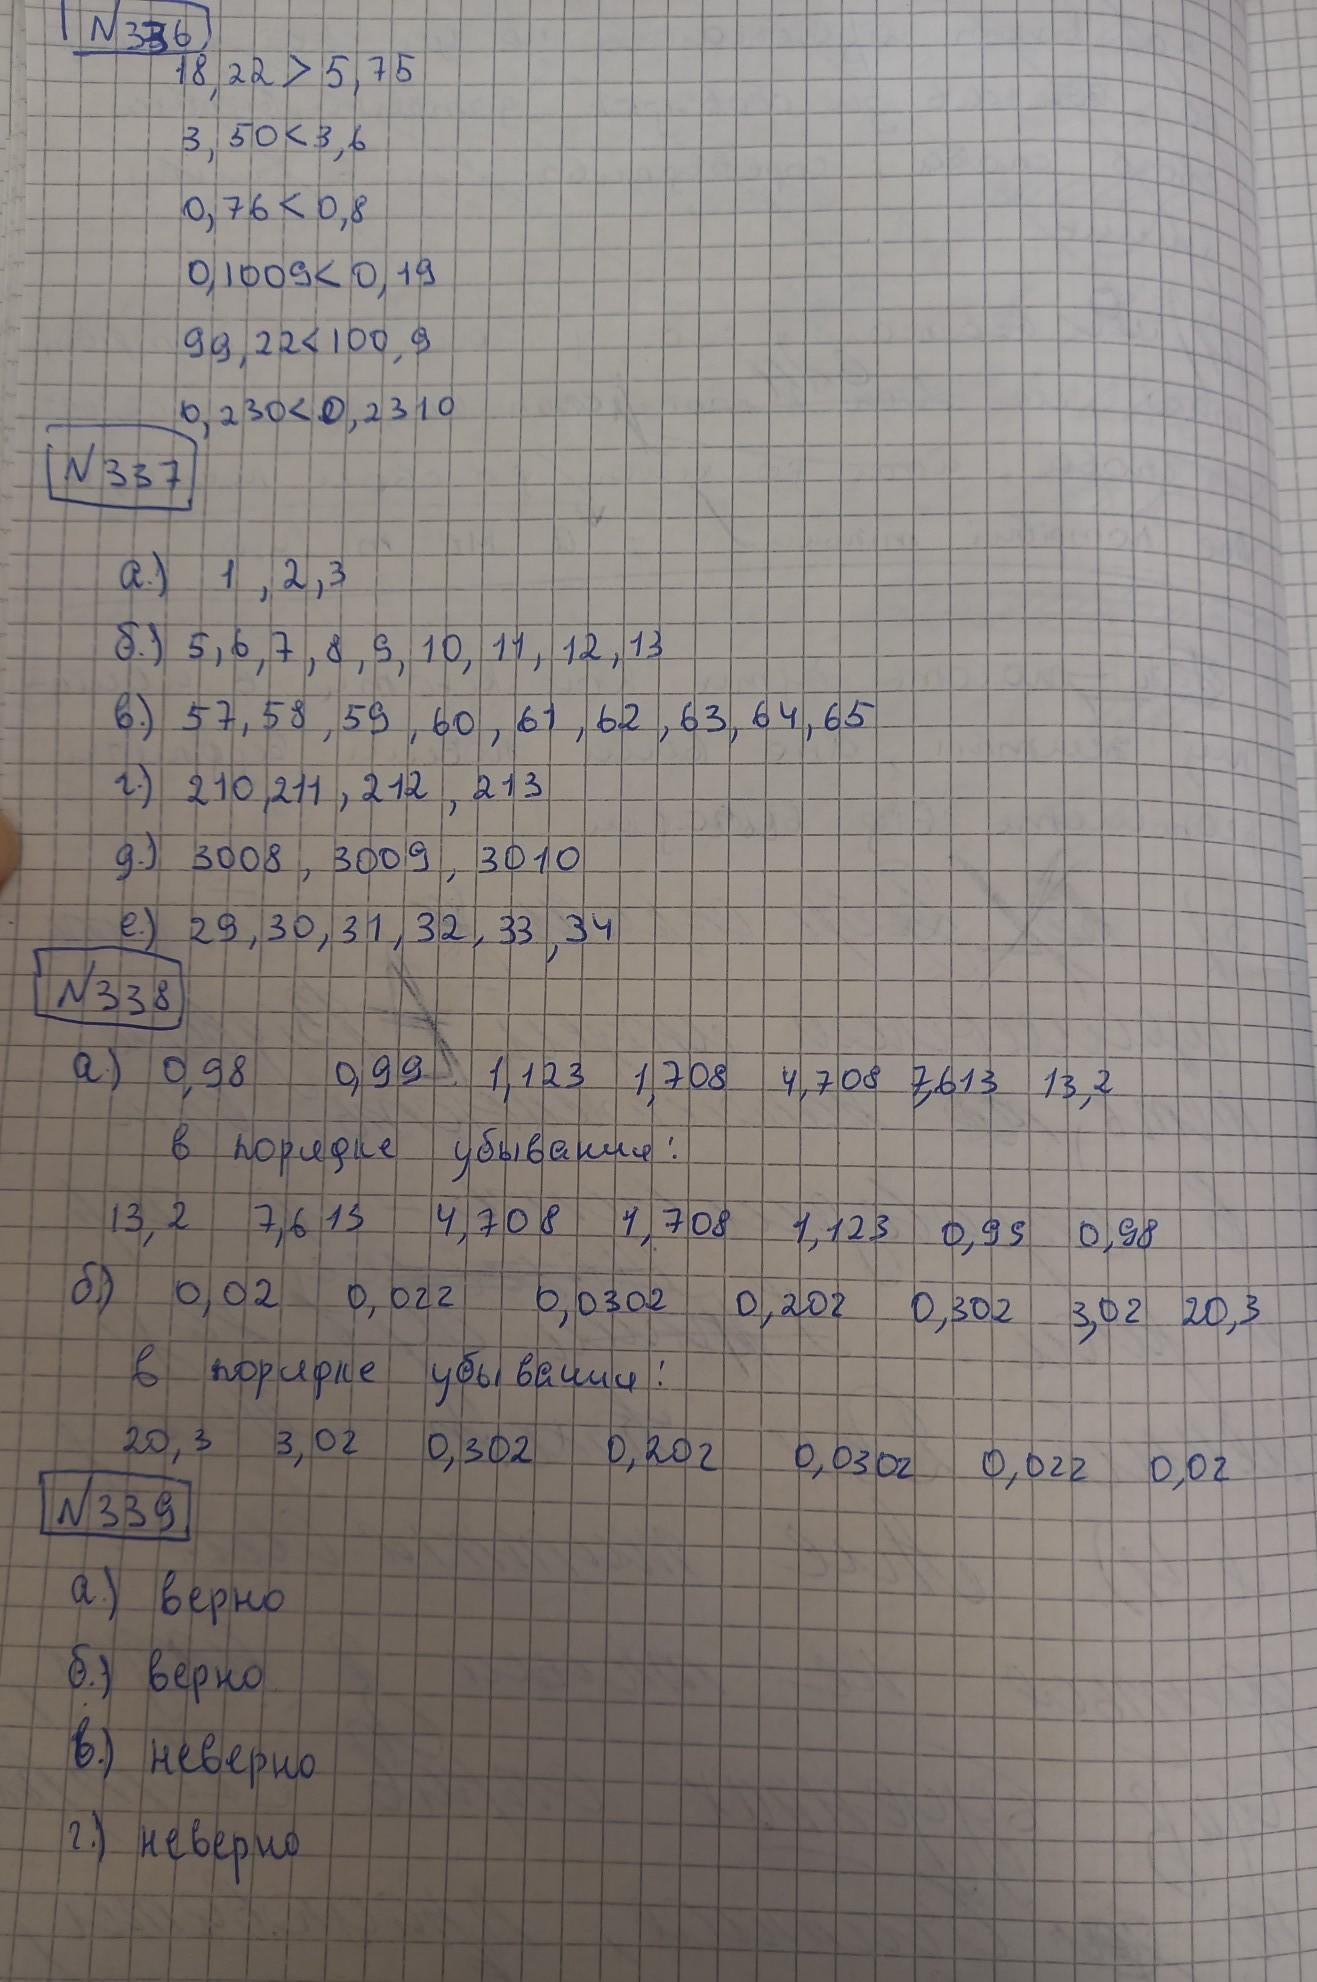 N336
18,22 > 5,75
3,50 < 3,6
0,76 < 0,8
0,1009 < 0,19
99,22 < 100,9
0,230 < 0,2310
N337
а.) 1, 2, 3
б.) 5, 6, 7, 8, 9, 10, 11, 12, 13
в.) 57, 58, 59, 60, 61, 62, 63, 64, 65
г.) 210, 211, 212, 213
д.) 3008, 3009, 3010
е.) 29, 30, 31, 32, 33, 34
N338
а.) 0,98 0,99 1,123 1,708 4,708 7,613 13,2
в порядке убывания:
13,2 7,613 4,708 1,708 1,123 0,99 0,98
б.) 0,02 0,022 0,0302 0,202 0,302 3,02 20,3
в порядке убывания:
20,3 3,02 0,302 0,202 0,0302 0,022 0,02
N339
а.) верно
б.) верно
в.) неверно
г.) неверно